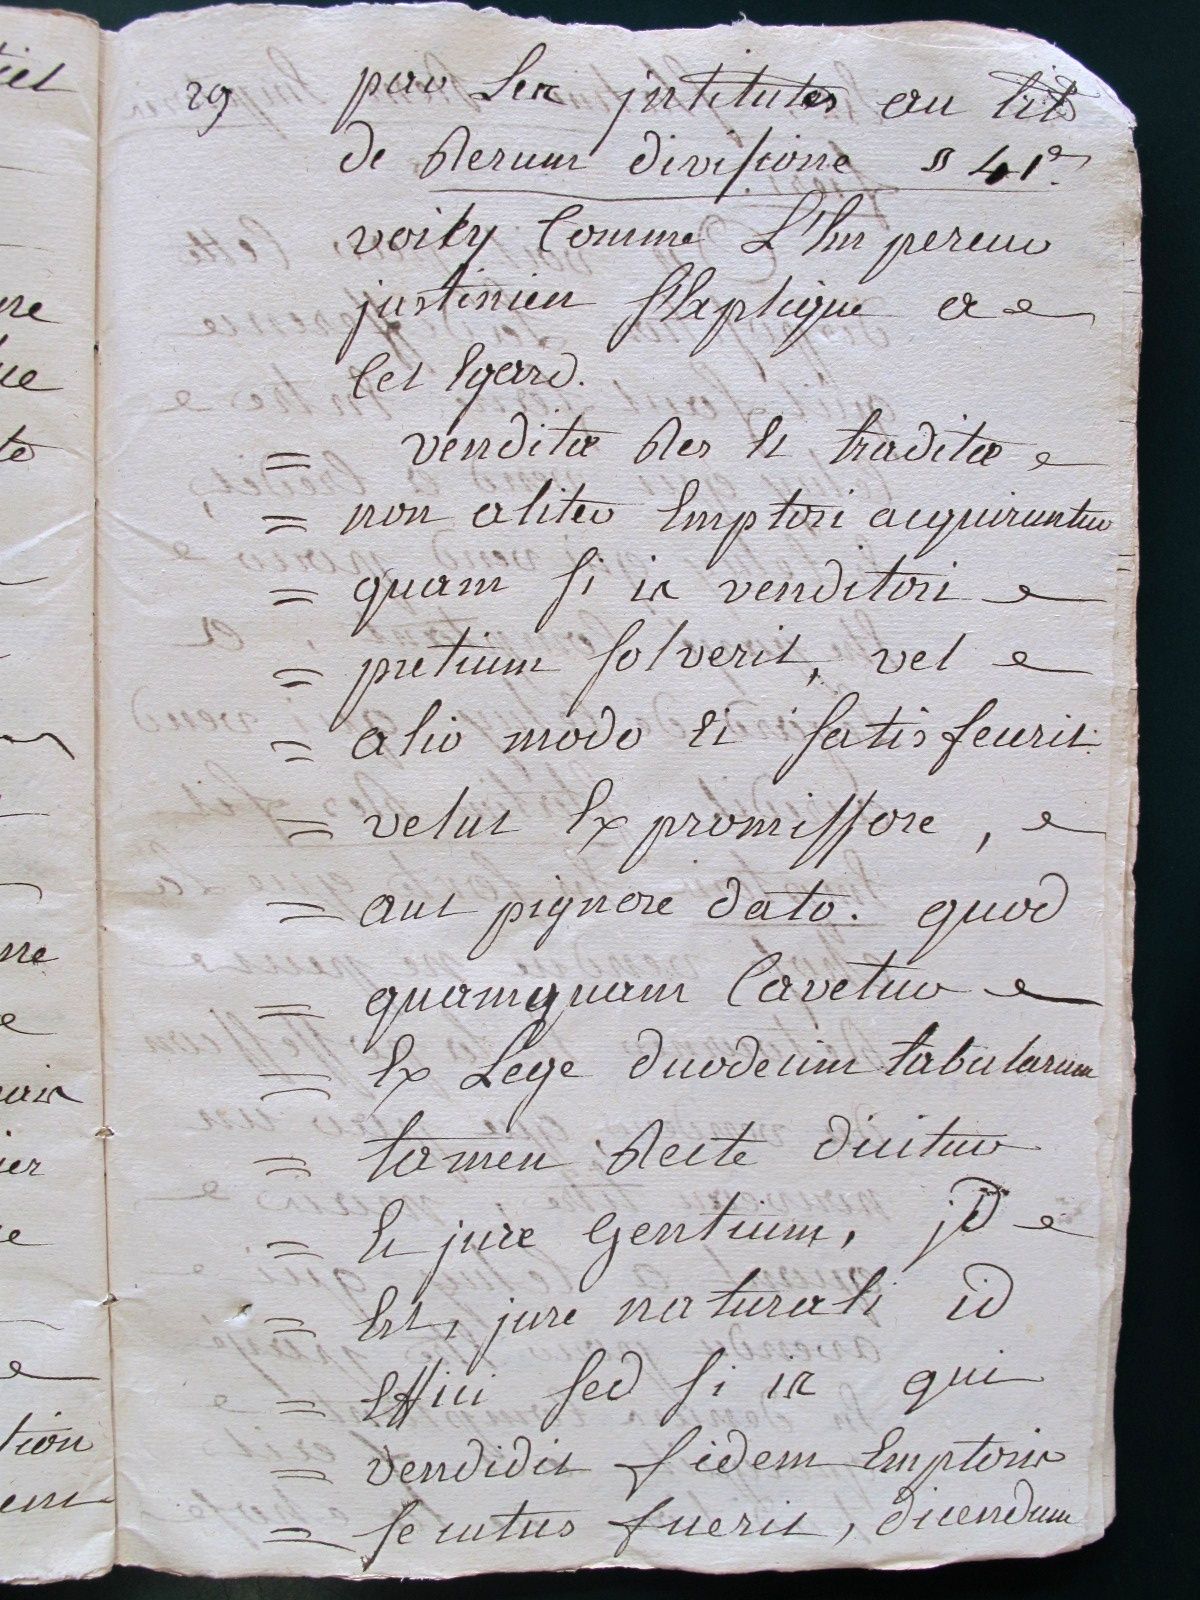 29 par les jnstitutes au tit
de rerum divisione § 41e.
voicy comme L'Empereur
justinien s'explique a
cet Egard.
= venditæ res Et traditæ
= non aliter Emptori acquiruntur
= quam si is venditori
= pretium solverit, vel
= alio modo Ei satisfecerit
= velut Expromissore,
= aut pignore dato. quod
= quamquam Cavetur
= Ex Lege duodecim tabularum
= tamen recte dicitur
= Et jure gentium, jd
= Est, jure naturali id
= Effici sed si is qui
= vendidit fidem Emptoris
= secutus fuerit, dicendum